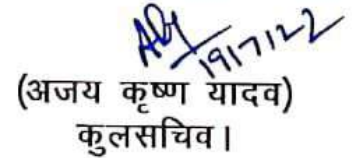 19/7/22
(अजय कृष्ण यादव)
कुलसचिव।